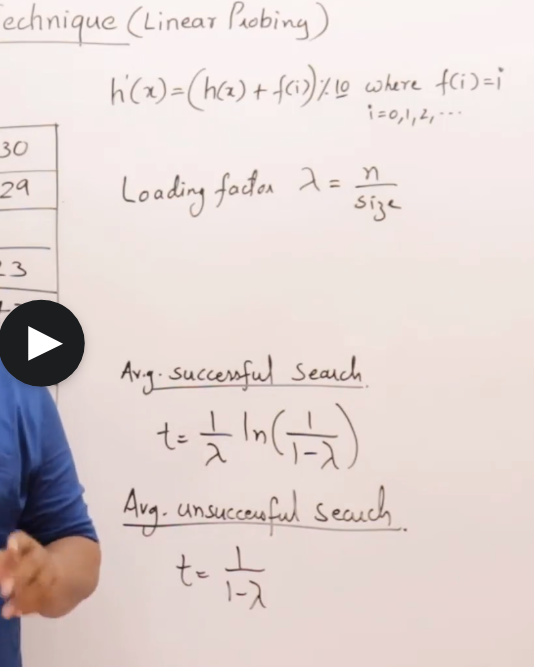 echnique (Linear Probing)
h'(x)=(h(x) + f(i))%10 where f(i)=i
i=0,1,2,...
30
29
23
Loading factor λ = n/size
Avg. successful search.
t= 1/λ ln(1/1-λ)
Avg. unsuccessful search.
t= 1/1-λ